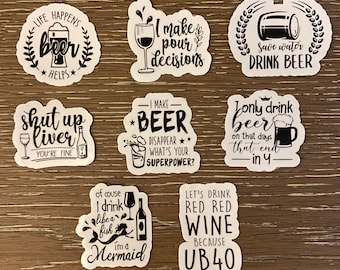 LIFE HAPPENS
beer
HELPS
I make
pour
decisions
Save water
DRINK BEER
shut up
liver
YOU'RE FINE
I MAKE
BEER
DISAPPEAR
WHAT'S YOUR
SUPERPOWER?
I only drink
beer
on that days
that end
in y
of couse
i drink
like a
fish
i'm a
Mermaid
LET'S DRINK
RED RED
WINE
BECAUSE
UB40